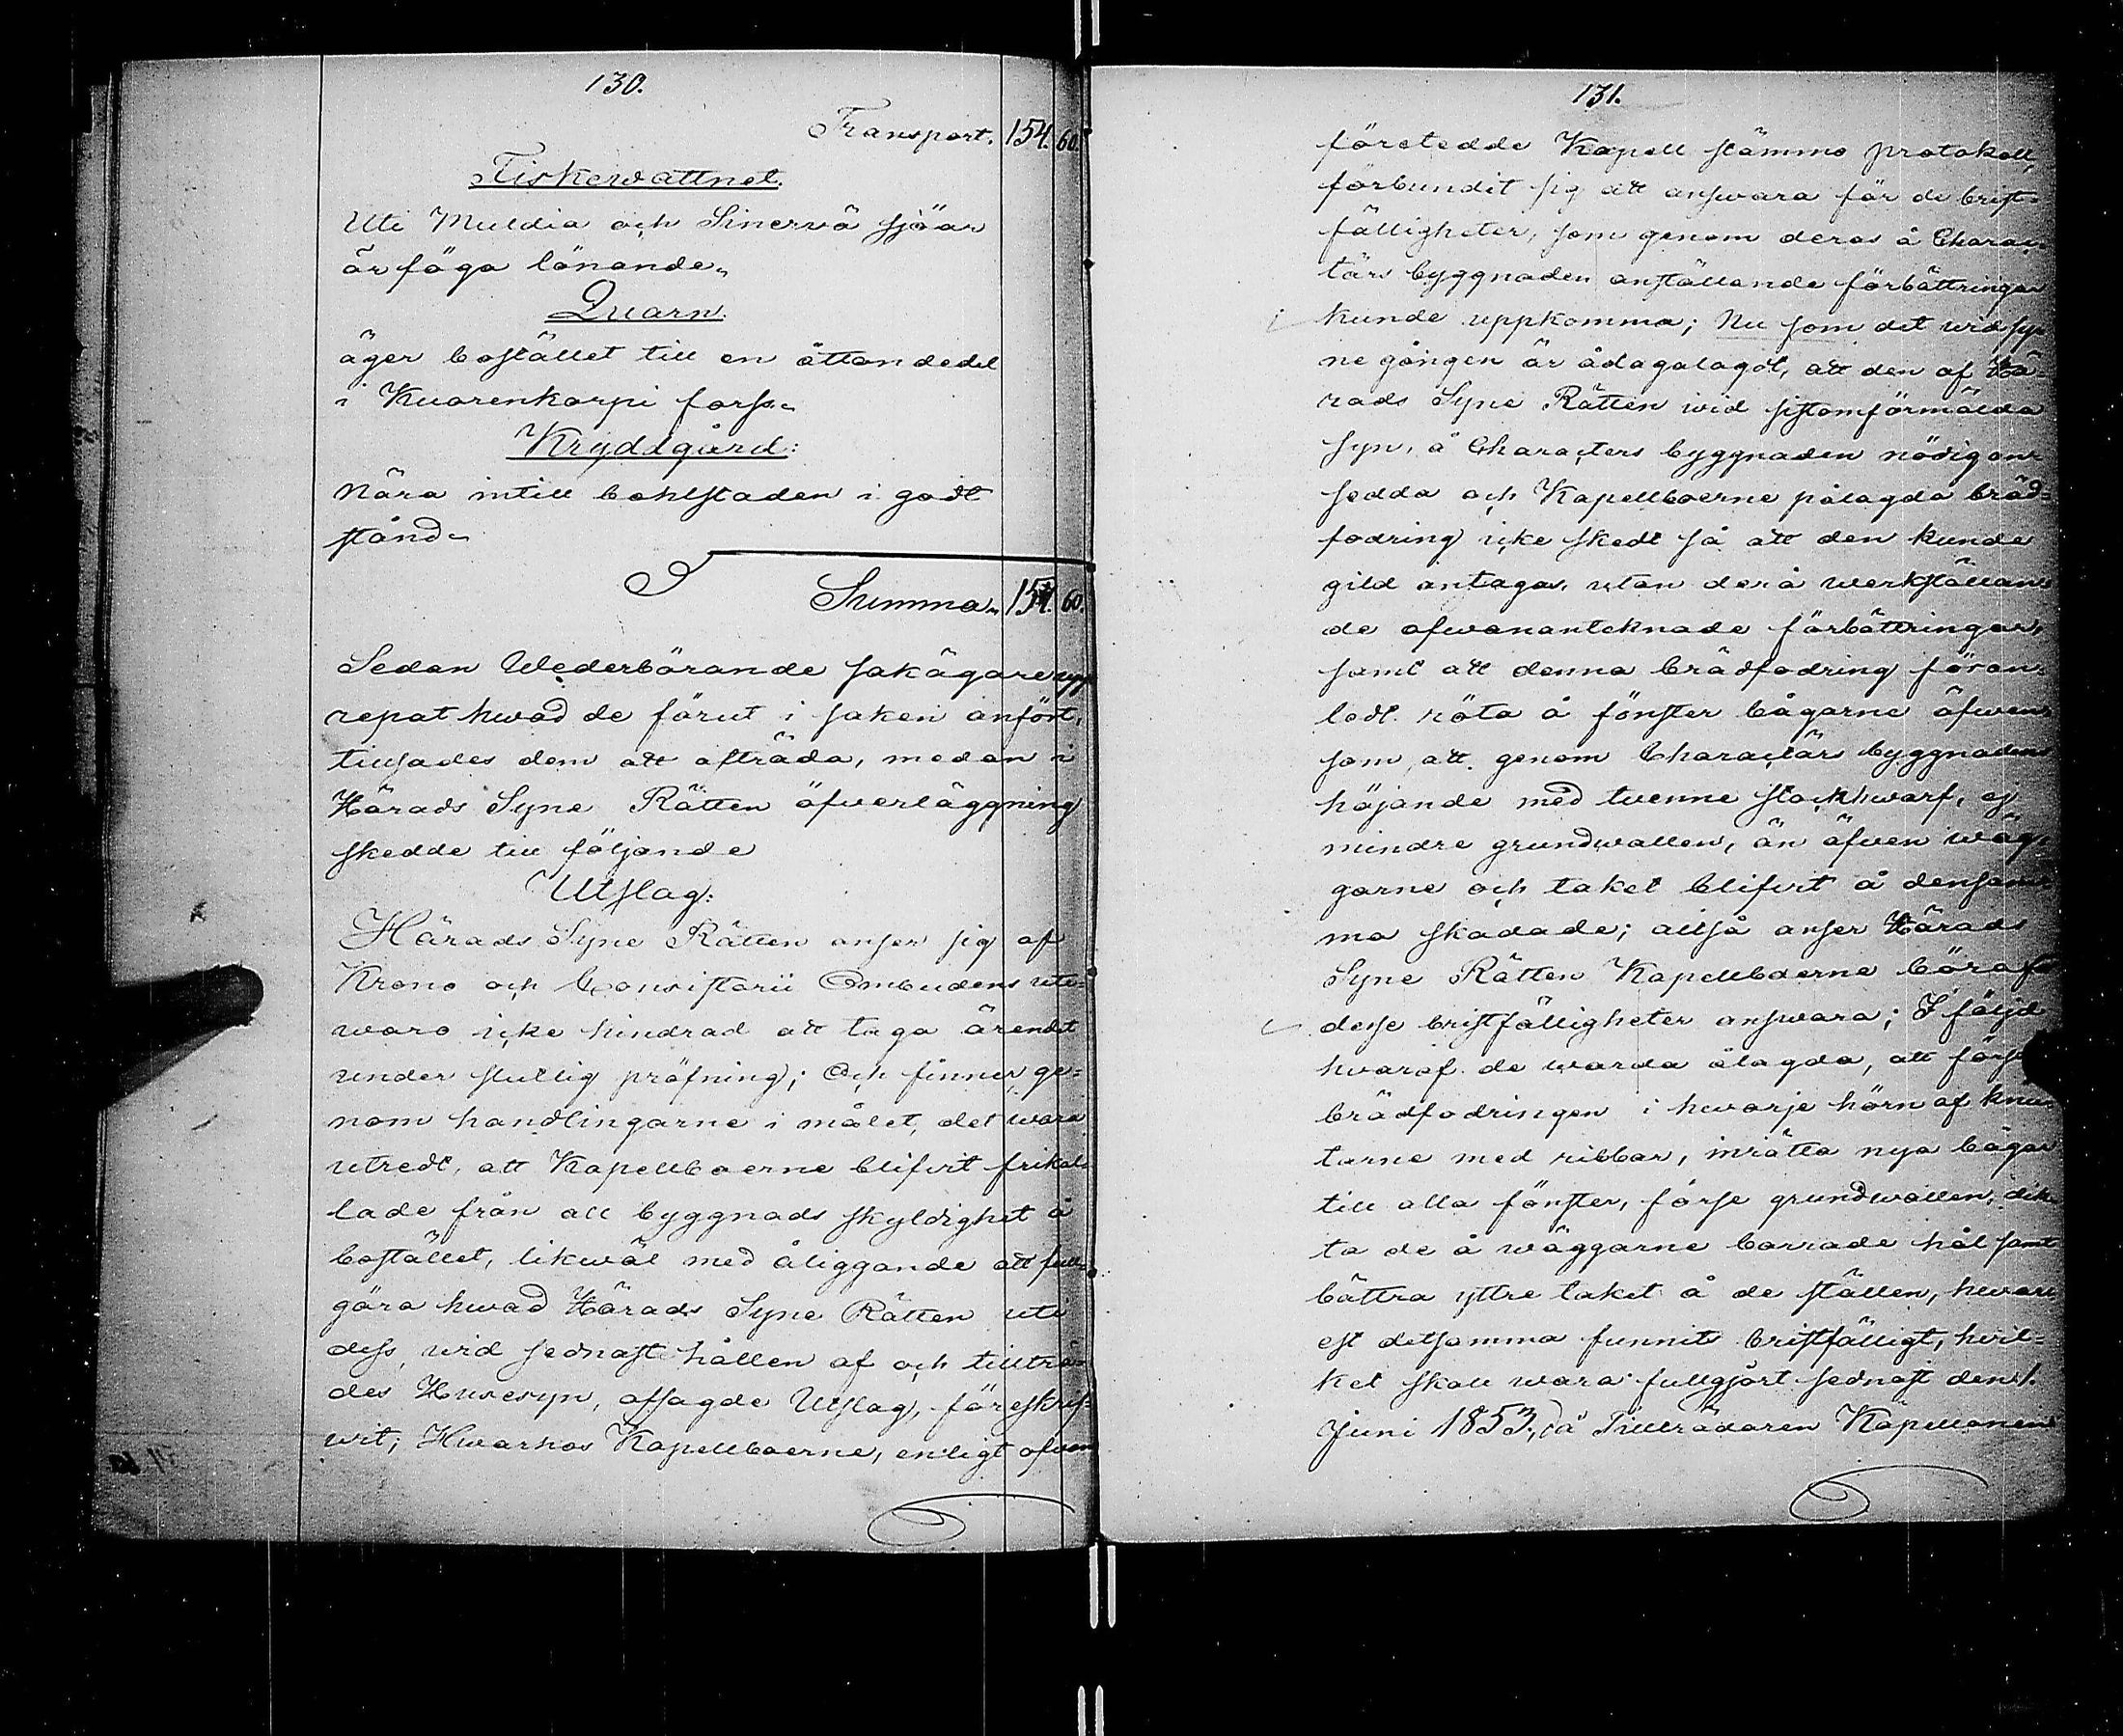 130.
Transport. 154. 60.
Fiskewattnet.
Uti Muldia och Sinervä sjöar
är föga lönande.
Quarn.
äger bostället till en åttondedel
i Kuorenkorpi forss.
Kryddgård:
Nära intill bohlstaden i godt
stånd.
Summa. 154. 60.
Sedan Wederbörande sakägare upp
repat hwad de förut i saken anfört,
tillsades dem att afträda, medan i
Härads Syne Rätten öfverläggning
skedde till följande
Utslag:
Härads Syne Rätten anser sig af
Krono och Consistorii Ombudens ute-
waro icke hindrad att taga ärendet
under slutlig pröfning; Och finner ge-
nom handlingarne i målet, det wara
utredt, att Kapellboerne blifvit frikal-
lade från all byggnads skyldighet å
bostället, likwäl med åliggande att full-
göra hwad Härads Syne Rätten uti
dess, vid sednast hållen af och tillträ-
des Husesyn, afsagde Utslag, föreskrif-
wit; Hwarhos Kapellboerne, enligt ofvan
131.
företedde Kapell stämmo protokoll,
förbundit sig att answara för de brist-
fälligheter, som genom deras å Charac-
tärs byggnaden anställande förbättringar
kunde uppkomma; Nu som det wid sy-
ne gången är ådagalagdt, att den af Hä-
rads Syne Rätten wid sistomförmälda
syn, å Characters byggnaden nödig an-
sedda och Kapellboerne pålagda bräd-
fodring icke skedt så att den kunde
gild antagas, utan derå werkställan-
de ofwananteknade förbättringar,
samt att denna brädfodring föran-
ledt röta å fönster bågarne äfwen-
som, att genom Charactärs byggnadens
höjande med twenne stockhwarf, ej
mindre grundwallen, än äfven wäg-
garne och taket blifvit å densam-
ma skadade; alltså anser Härads
Syne Rätten Kapellboerne böra för
desse bristfälligheter answara; I följd
hwaraf de warda ålagda, att förse
brädfodringen i hwarje hörn af knu-
tarne med ribbar, inrätta nya bågar
till alla fönster, förse grundwallen, dik-
ta de å wäggarne borrade hål samt
bättra yttre taket å de ställen, hwar-
est detsamma funnits bristfälligt, hvil-
ket skall wara fullgjort sednast den 1.
Juni 1853, då Tillträdaren Kapellanen